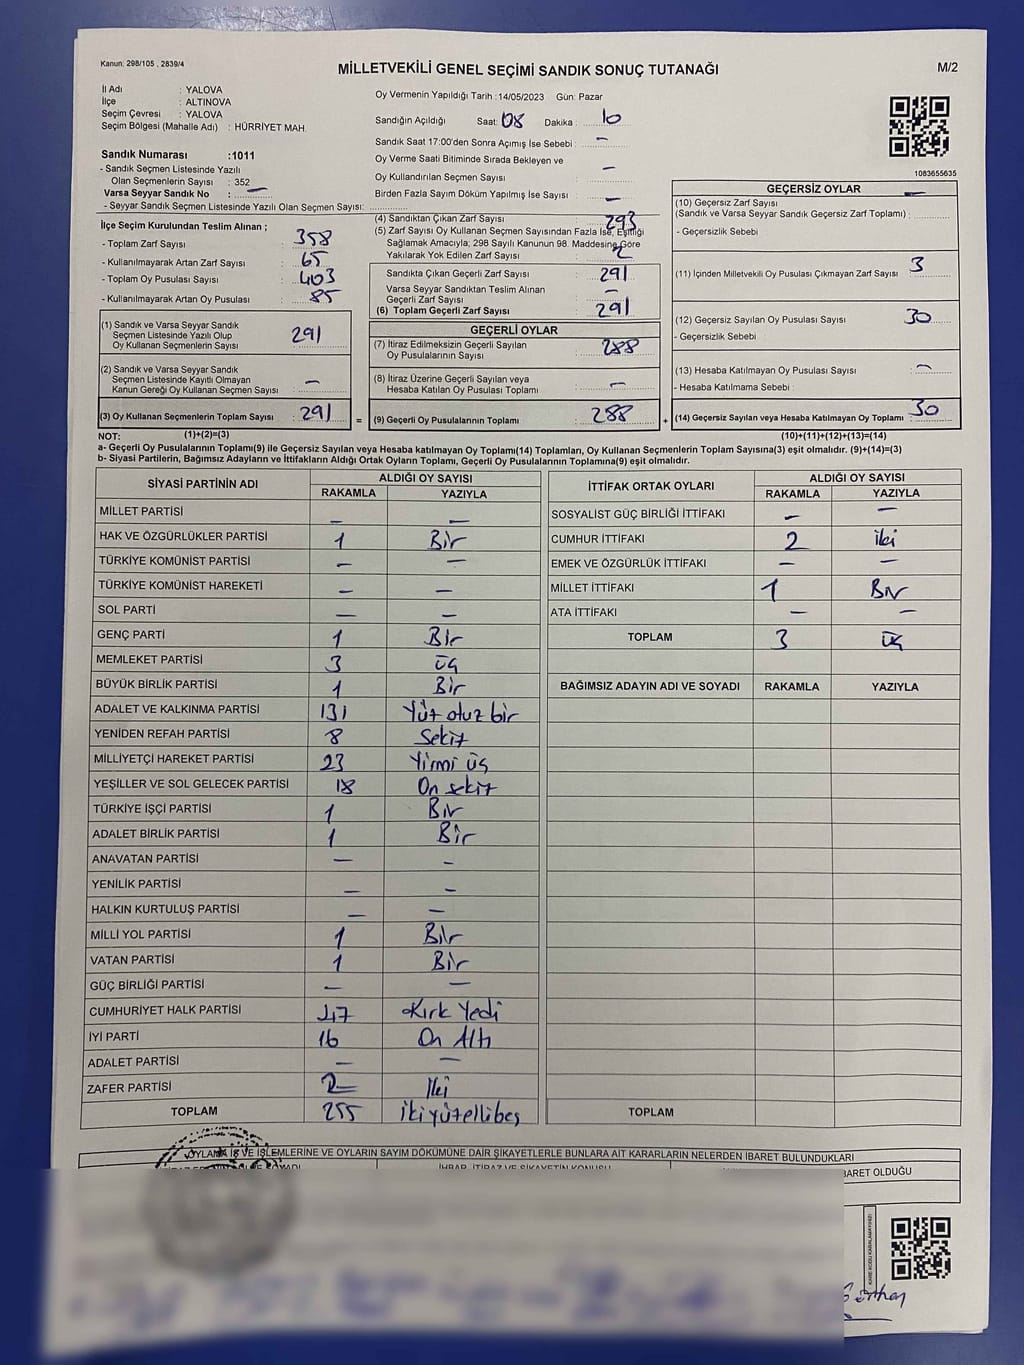 Kanun: 298/105 , 2839/4
MİLLETVEKİLİ GENEL SEÇİMİ SANDIK SONUÇ TUTANAĞI
M/2
İl Adı : YALOVA
İlçe : ALTINOVA
Seçim Çevresi : YALOVA
Seçim Bölgesi (Mahalle Adı) : HÜRRİYET MAH.
Oy Vermenin Yapıldığı Tarih : 14/05/2023 Gün: Pazar
Sandığın Açıldığı Saat: 08 Dakika : 10
Sandık Saat 17:00'den Sonra Açımış İse Sebebi : —
Oy Verme Saati Bitiminde Sırada Bekleyen ve
Oy Kullandırılan Seçmen Sayısı : —
Birden Fazla Sayım Döküm Yapılmış İse Sayısı : —
1083655635
Sandık Numarası :1011
- Sandık Seçmen Listesinde Yazılı
Olan Seçmenlerin Sayısı : 352
Varsa Seyyar Sandık No : —
- Seyyar Sandık Seçmen Listesinde Yazılı Olan Seçmen Sayısı:
İlçe Seçim Kurulundan Teslim Alınan ;
- Toplam Zarf Sayısı : 358
- Kullanılmayarak Artan Zarf Sayısı : 65
- Toplam Oy Pusulası Sayısı : 403
- Kullanılmayarak Artan Oy Pusulası : 85
(1) Sandık ve Varsa Seyyar Sandık
Seçmen Listesinde Yazılı Olup
Oy Kullanan Seçmenlerin Sayısı : 291
(2) Sandık ve Varsa Seyyar Sandık
Seçmen Listesinde Kayıtlı Olmayan
Kanun Gereği Oy Kullanan Seçmen Sayısı : —
(3) Oy Kullanan Seçmenlerin Toplam Sayısı : 291
(1)+(2)=(3)
(4) Sandıktan Çıkan Zarf Sayısı : 293
(5) Zarf Sayısı Oy Kullanan Seçmen Sayısından Fazla İse, Eşitliği
Sağlamak Amacıyla, 298 Sayılı Kanunun 98. Maddesine Göre
Yakılarak Yok Edilen Zarf Sayısı : 2
Sandıkta Çıkan Geçerli Zarf Sayısı : 291
Varsa Seyyar Sandıktan Teslim Alınan
Geçerli Zarf Sayısı : —
(6) Toplam Geçerli Zarf Sayısı : 291
GEÇERLİ OYLAR
(7) İtiraz Edilmeksizin Geçerli Sayılan
Oy Pusulalarının Sayısı : 288
(8) İtiraz Üzerine Geçerli Sayılan veya
Hesaba Katılan Oy Pusulası Toplamı : —
= (9) Geçerli Oy Pusulalarının Toplamı : 288
GEÇERSİZ OYLAR
(10) Geçersiz Zarf Sayısı —
(Sandık ve Varsa Seyyar Sandık Geçersiz Zarf Toplamı) :
- Geçersizlik Sebebi :
(11) İçinden Milletvekili Oy Pusulası Çıkmayan Zarf Sayısı : 3
(12) Geçersiz Sayılan Oy Pusulası Sayısı : 30
- Geçersizlik Sebebi :
(13) Hesaba Katılmayan Oy Pusulası Sayısı : —
- Hesaba Katılmama Sebebi :
+ (14) Geçersiz Sayılan veya Hesaba Katılmayan Oy Toplamı : 30
(10)+(11)+(12)+(13)=(14)
NOT:
a- Geçerli Oy Pusulalarının Toplamı(9) ile Geçersiz Sayılan veya Hesaba katılmayan Oy Toplamı(14) Toplamları, Oy Kullanan Seçmenlerin Toplam Sayısına(3) eşit olmalıdır. (9)+(14)=(3)
b- Siyasi Partilerin, Bağımsız Adayların ve İttifakların Aldığı Ortak Oyların Toplamı, Geçerli Oy Pusulalarının Toplamına(9) eşit olmalıdır.
SİYASİ PARTİNİN ADI ALDIĞI OY SAYISI
RAKAMLA YAZIYLA
MİLLET PARTİSİ — —
HAK VE ÖZGÜRLÜKLER PARTİSİ 1 Bir
TÜRKİYE KOMÜNİST PARTİSİ — —
TÜRKİYE KOMÜNİST HAREKETİ — —
SOL PARTİ — —
GENÇ PARTİ 1 Bir
MEMLEKET PARTİSİ 3 üç
BÜYÜK BİRLİK PARTİSİ 1 Bir
ADALET VE KALKINMA PARTİSİ 131 Yüz otuz bir
YENİDEN REFAH PARTİSİ 8 Sekiz
MİLLİYETÇİ HAREKET PARTİSİ 23 Yirmi üç
YEŞİLLER VE SOL GELECEK PARTİSİ 18 On sekiz
TÜRKİYE İŞÇİ PARTİSİ 1 Bir
ADALET BİRLİK PARTİSİ 1 Bir
ANAVATAN PARTİSİ — —
YENİLİK PARTİSİ — —
HALKIN KURTULUŞ PARTİSİ — —
MİLLİ YOL PARTİSİ 1 Bir
VATAN PARTİSİ 1 Bir
GÜÇ BİRLİĞİ PARTİSİ — —
CUMHURİYET HALK PARTİSİ 47 Kırk Yedi
İYİ PARTİ 16 On Altı
ADALET PARTİSİ — —
ZAFER PARTİSİ 2 İki
TOPLAM 255 ikiyüzellibeş
İTTİFAK ORTAK OYLARI ALDIĞI OY SAYISI
RAKAMLA YAZIYLA
SOSYALİST GÜÇ BİRLİĞİ İTTİFAKI — —
CUMHUR İTTİFAKI 2 iki
EMEK VE ÖZGÜRLÜK İTTİFAKI — —
MİLLET İTTİFAKI 1 Bir
ATA İTTİFAKI — —
TOPLAM 3 üç
BAĞIMSIZ ADAYIN ADI VE SOYADI RAKAMLA YAZIYLA
TOPLAM
OYLAMA İŞ VE İŞLEMLERİNE VE OYLARIN SAYIM DÖKÜMÜNE DAİR ŞİKAYETLERLE BUNLARA AİT KARARLARIN NELERDEN İBARET BULUNDUKLARI
İHBAR, İTİRAZ VE ŞİKAYETİN KONUSU
BARET OLDUĞU